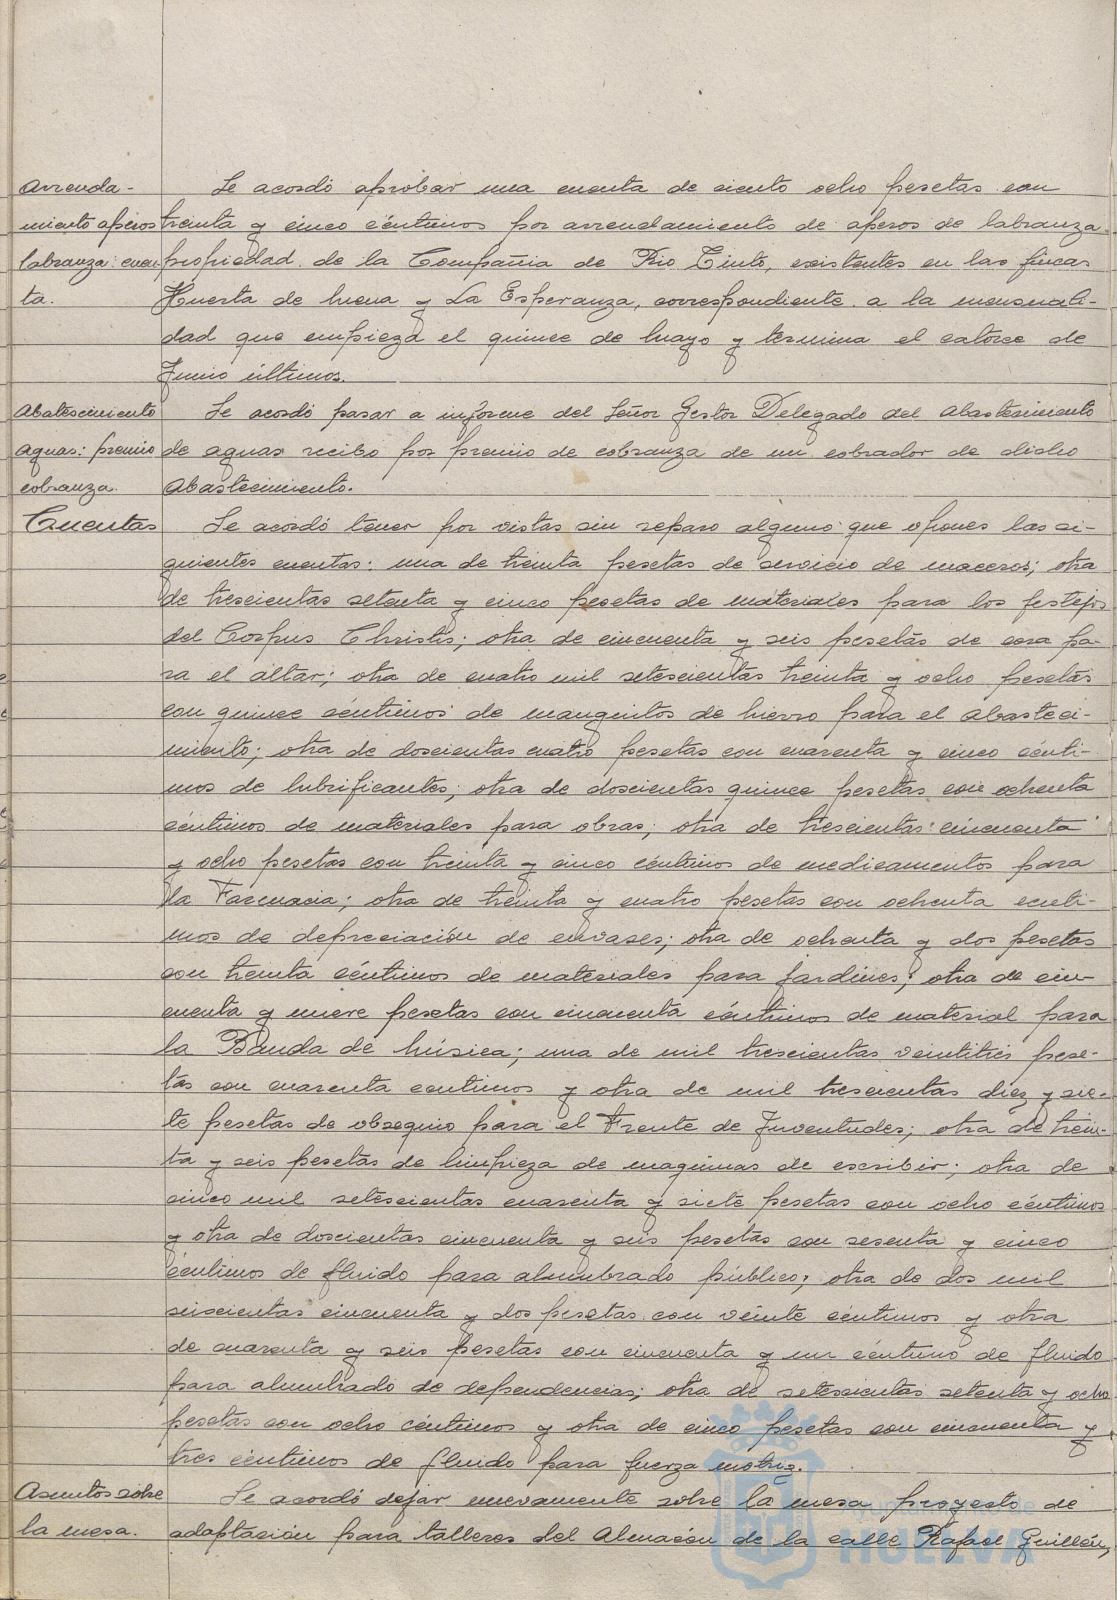 Arrenda-
miento aperos
labranza: cuen
ta.
Se acordó aprobar una cuenta de ciento ocho pesetas con
treinta y cinco céntimos por arrendamiento de aperos de labranza
propiedad de la Compañia de Rio Tinto, existentes en las fincas
Huerta de Mena y La Esperanza, correspondiente a la mensuali-
dad que empieza el quince de Mayo y termina el catorce de
Junio últimos.
Abastecimiento
aguas: premio
cobranza.
Se acordó pasar a informe del Señor Gestor Delegado del Abastecimiento
de aguas recibo por premio de cobranza de un cobrador de dicho
Abastecimiento.
Cuentas
Se acordó tener por vistas sin reparo alguno que oponer las si-
guientes cuentas: una de treinta pesetas de servicio de maceros; otra
de trescientas setenta y cinco pesetas de materiales para los festejos
del Corpus Christis; otra de cincuenta y seis pesetas de cera pa-
ra el altar; otra de cuatro mil setescientas treinta y ocho pesetas
con quince céntimos de manguitos de hierro para el abasteci-
miento; otra de doscientas cuatro pesetas con cuarenta y cinco cénti-
mos de lubrificantes; otra de doscientas quince pesetas con ochenta
céntimos de materiales para obras; otra de trescientas cincuenta
y ocho pesetas con treinta y cinco céntimos de medicamentos para
la Farmacia; otra de treinta y cuatro pesetas con ochenta cénti-
mos de depreciación de envases; otra de ochenta y dos pesetas
con treinta céntimos de materiales para jardines; otra de cin-
cuenta y nueve pesetas con cincuenta céntimos de material para
la Banda de Música; una de mil trescientas veintitrés pese-
tas con cuarenta centimos y otra de mil trescientas diez y sie-
te pesetas de obsequio para el Frente de Juventudes; otra de trein-
ta y seis pesetas de limpieza de maquinas de escribir; otra de
cinco mil setescientas cuarenta y siete pesetas con ocho céntimos
y otra de doscientas cincuenta y seis pesetas con sesenta y cinco
céntimos de fluido para alumbrado público; otra de dos mil
seiscientas cincuenta y dos pesetas con veinte céntimos y otra
de cuarenta y seis pesetas con cincuenta y un céntimo de fluido
para alumbrado de dependencias; otra de setescientas setenta y ocho
pesetas con ocho céntimos y otra de cinco pesetas con cincuenta y
tres céntimos de fluido para fuerza motriz.
Asuntos sobre
la mesa.
Se acordó dejar nuevamente sobre la mesa proyecto de
adaptación para talleres del Almacén de la calle Rafael Guillén,
Ayuntamiento de
HUELVA